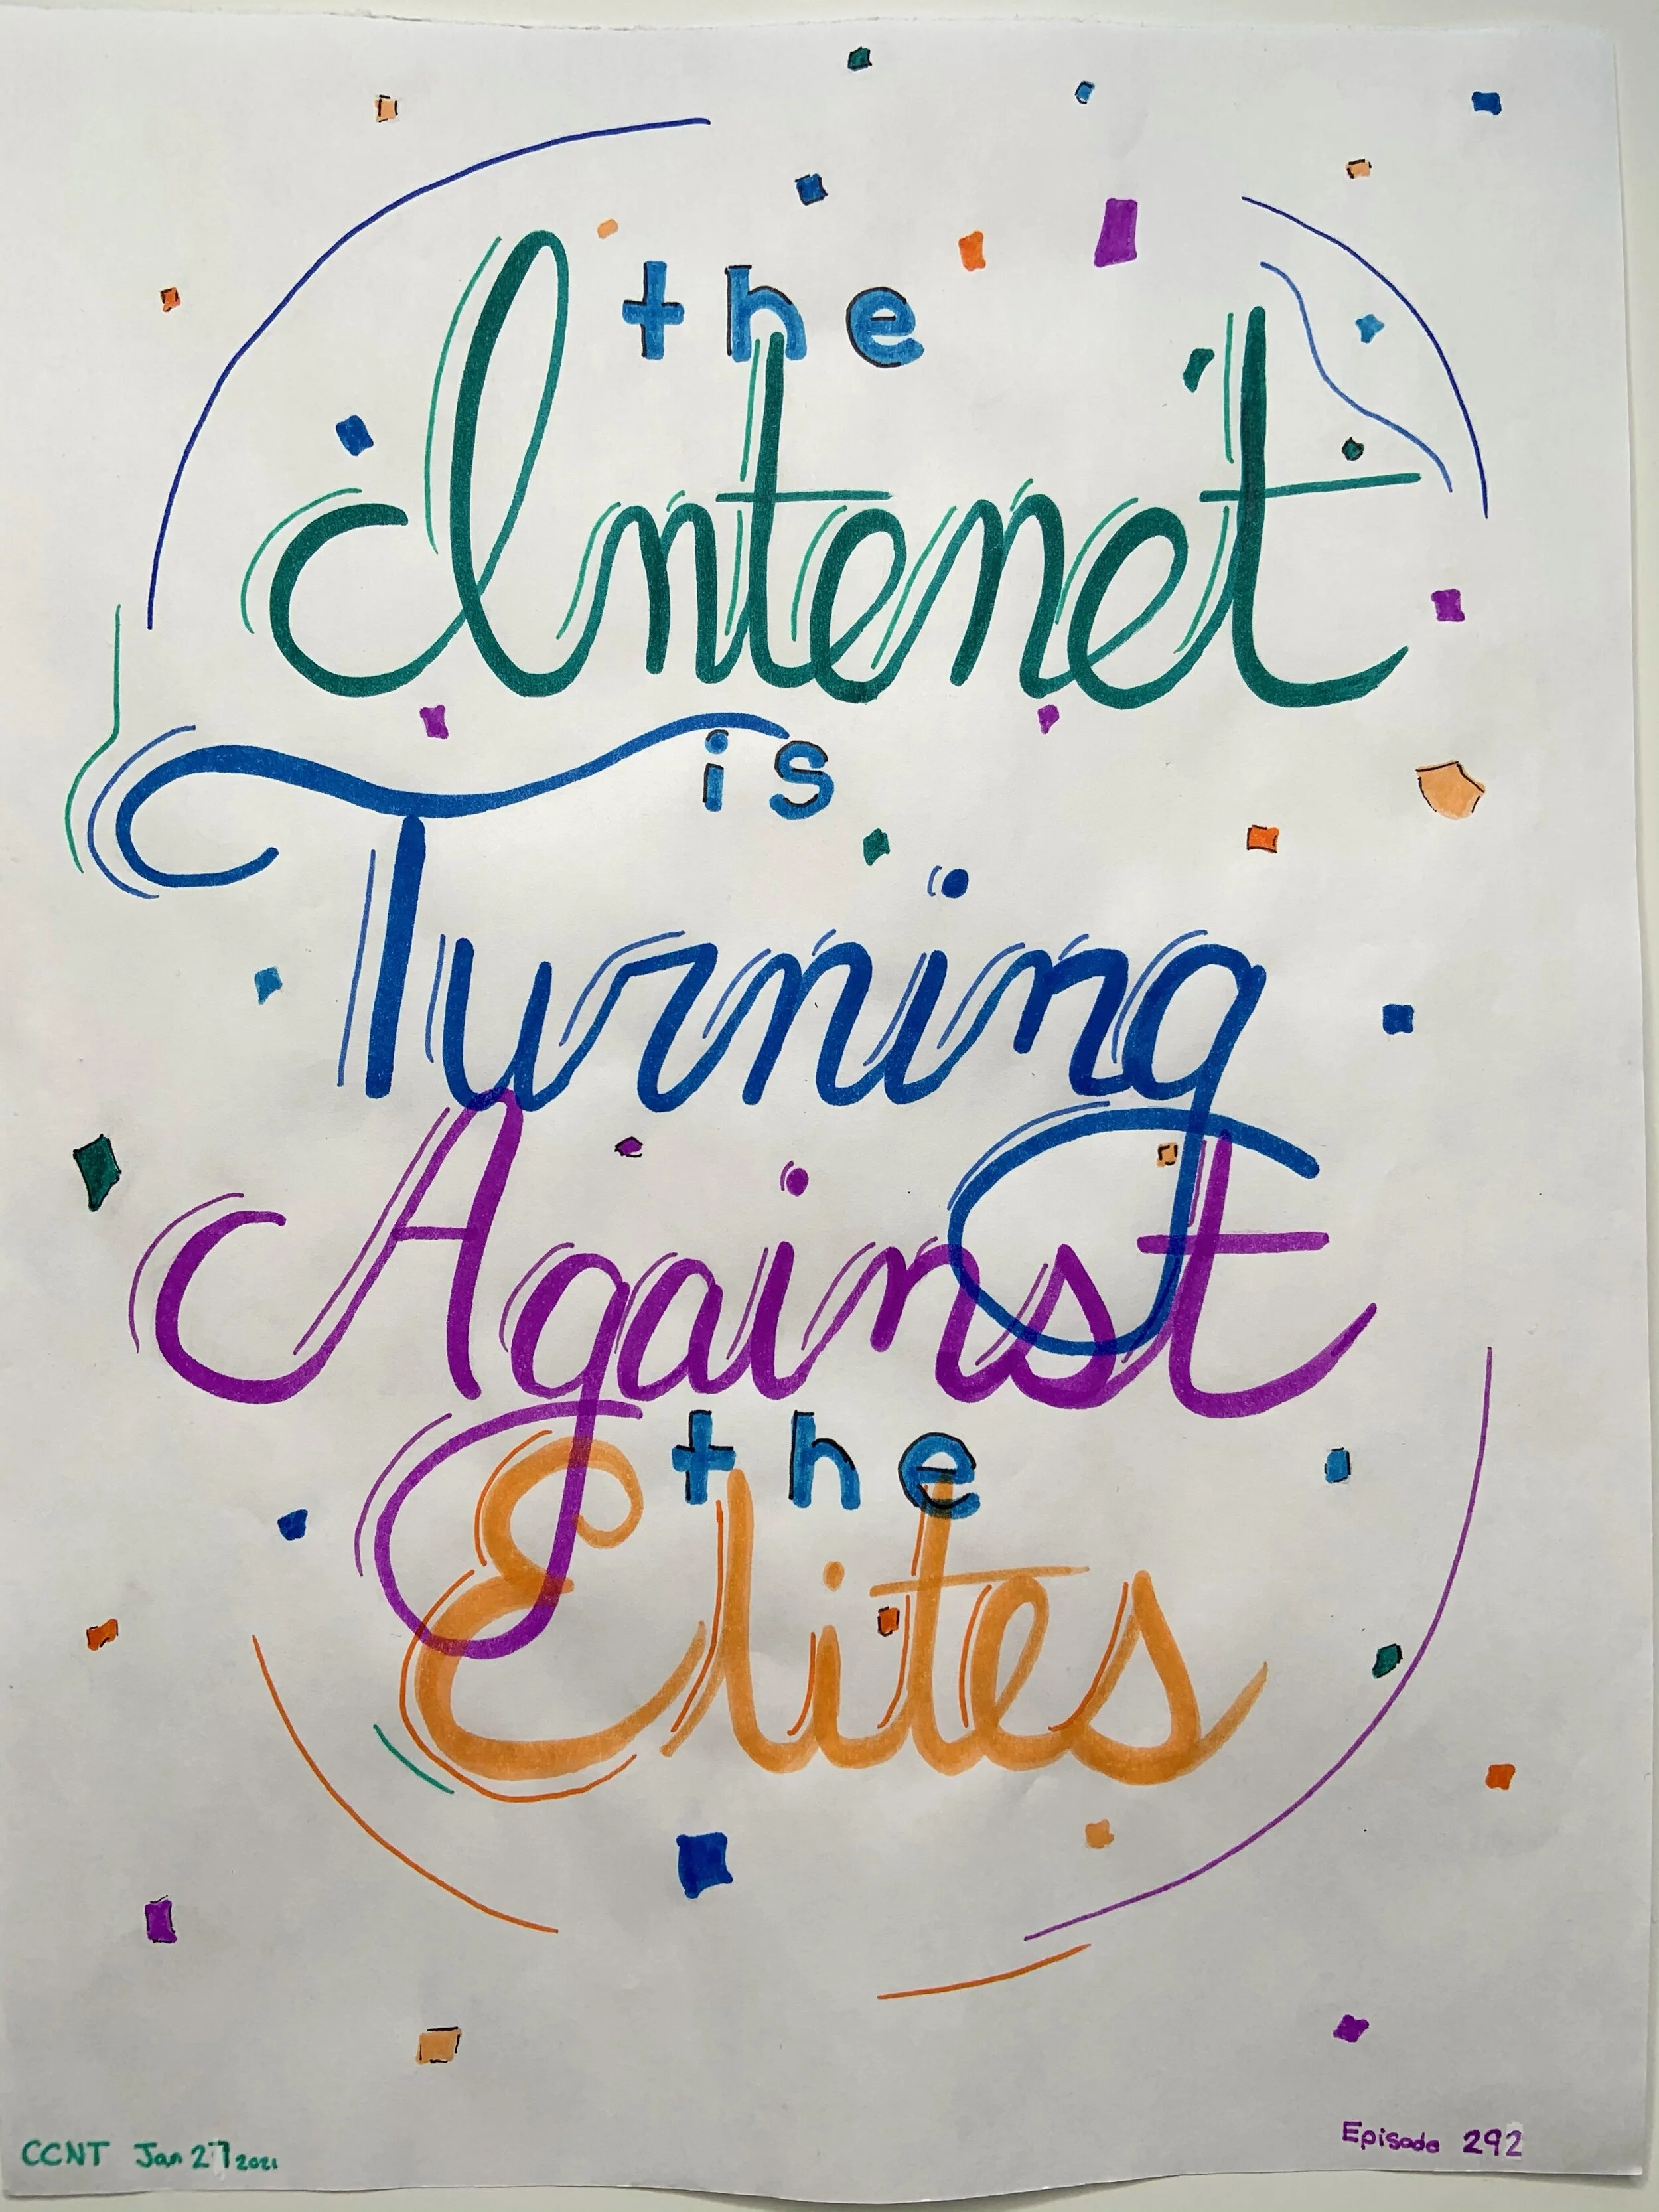 the
Intenet
is
Turning
Against
the
Elites
CCNT Jan 27 2021
Episode 292